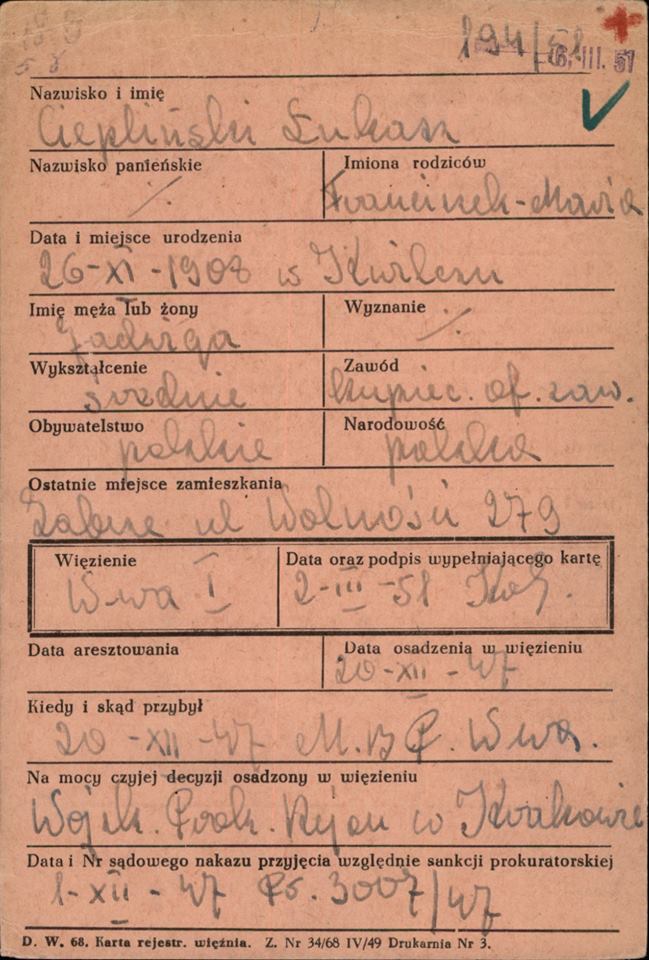 194/51
6. III. 51
Nazwisko i imię
Ciepliński Łukasz
Nazwisko panieńskie
Imiona rodziców
Franciszek-Maria
Data i miejsce urodzenia
26-XI-1908 w Kwilczu
Imię męża lub żony
Jadwiga
Wyznanie
Wykształcenie
średnie
Zawód
kupiec. of. zaw.
Obywatelstwo
polskie
Narodowość
polska
Ostatnie miejsce zamieszkania
Zabrze ul Wolności 279
Więzienie
W-wa I
Data oraz podpis wypełniającego kartę
2-III-51
Data aresztowania
Data osadzenia w więzieniu
20-XII-47
Kiedy i skąd przybył
20-XII-47 M.B.P. W-wa.
Na mocy czyjej decyzji osadzony w więzieniu
Wojsk. Prok. Rejon w Krakowie
Data i Nr sądowego nakazu przyjęcia względnie sankcji prokuratorskiej
1-XII-47 Pr. 3007/47
D. W. 68. Karta rejestr. więźnia. Z. Nr 34/68 IV/49 Drukarnia Nr 3.